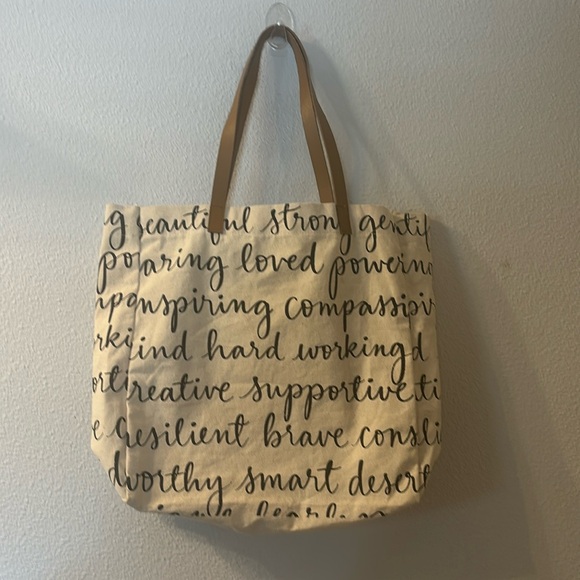 g eautiful strong gentl
po aring loved powerin
mpa nspiring compassi
rki ind hard working d
orti reative supportive ti
e resilient brave consi
d worthy smart desert
fearl